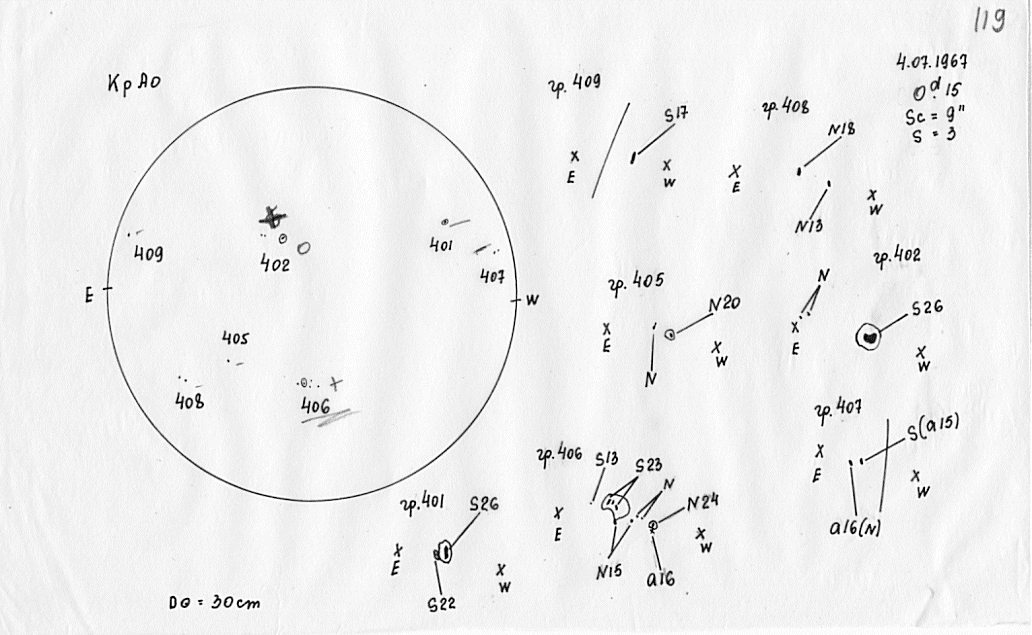 119
КрАО
4.07.1967
O d. 15
Sc = 9"
S = 3
E
W
409
402
401
407
405
408
406
гр. 409
S17
X
E
X
W
гр. 408
N18
N13
X
E
X
W
гр. 405
N20
N
X
E
X
W
гр. 402
N
S26
X
E
X
W
гр. 407
S(a15)
a16(N)
X
E
X
W
гр. 406
S13
S23
N
N24
N15
a16
X
E
X
W
гр. 401
S26
S22
X
E
X
W
D⊙ = 30cm